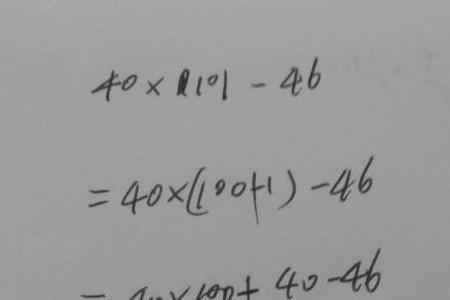 40×101-46
=40×(100+1)-46
=40×100+40-46